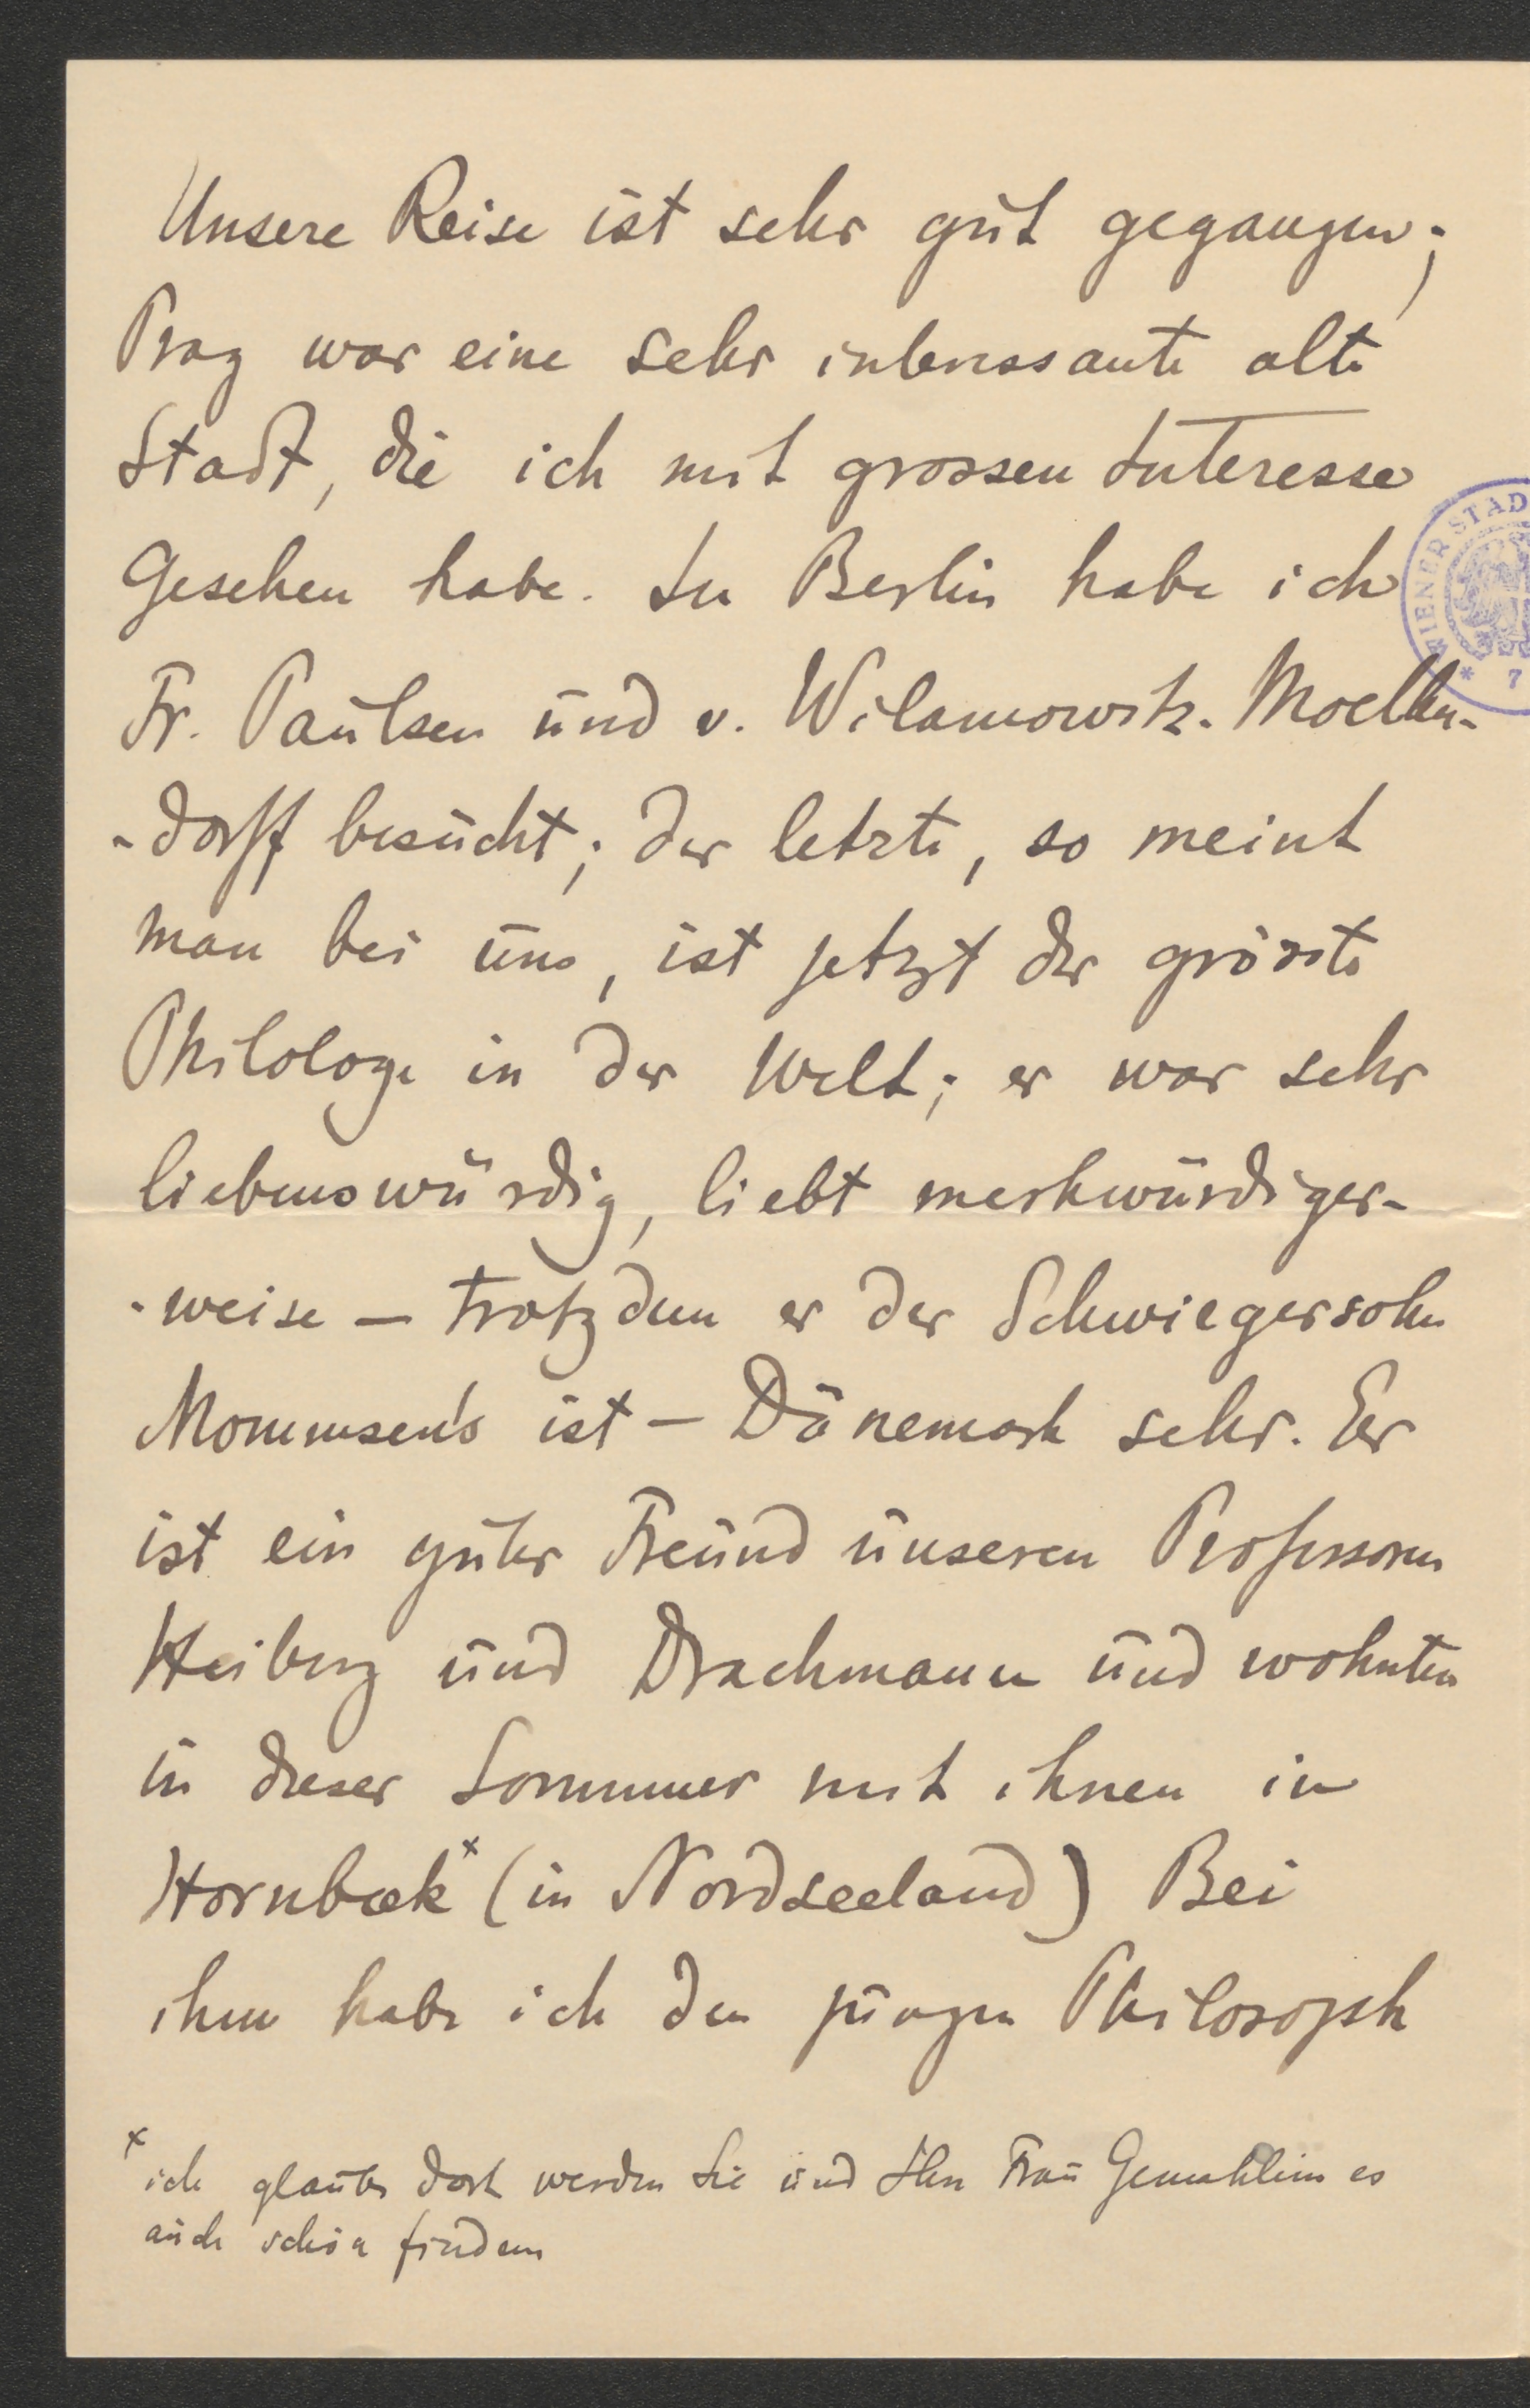 Unsere Reise ist sehr gut gegangen;
Prag war eine sehr interessante alte
Stadt, die ich mit grossen Interesse
Gesehen habe. In Berlin habe ich
Fr. Paulsen und v. Wilamowitz-Moellen-
-dorff besucht; der letzte, so meint
man bei uns, ist jetzt der grösste
Philologe in der Welt; er war sehr
liebenswürdig, liebt merkwürdiger-
-weise – trotzdem er der Schwiegersohn
Mommsen's ist – Dänemark sehr. Er
ist ein guter Freund unseren Professoren
Heiberg und Drachmann und wohnten
in dieser Sommer mit ihnen in
Hornbæk x (in Nordseeland) Bei
ihm habe ich den jungen Philosoph
x ich glaube dort werden Sie und Ihre Frau Gemahlin es
auch schön finden
WIENER STAD
* 7